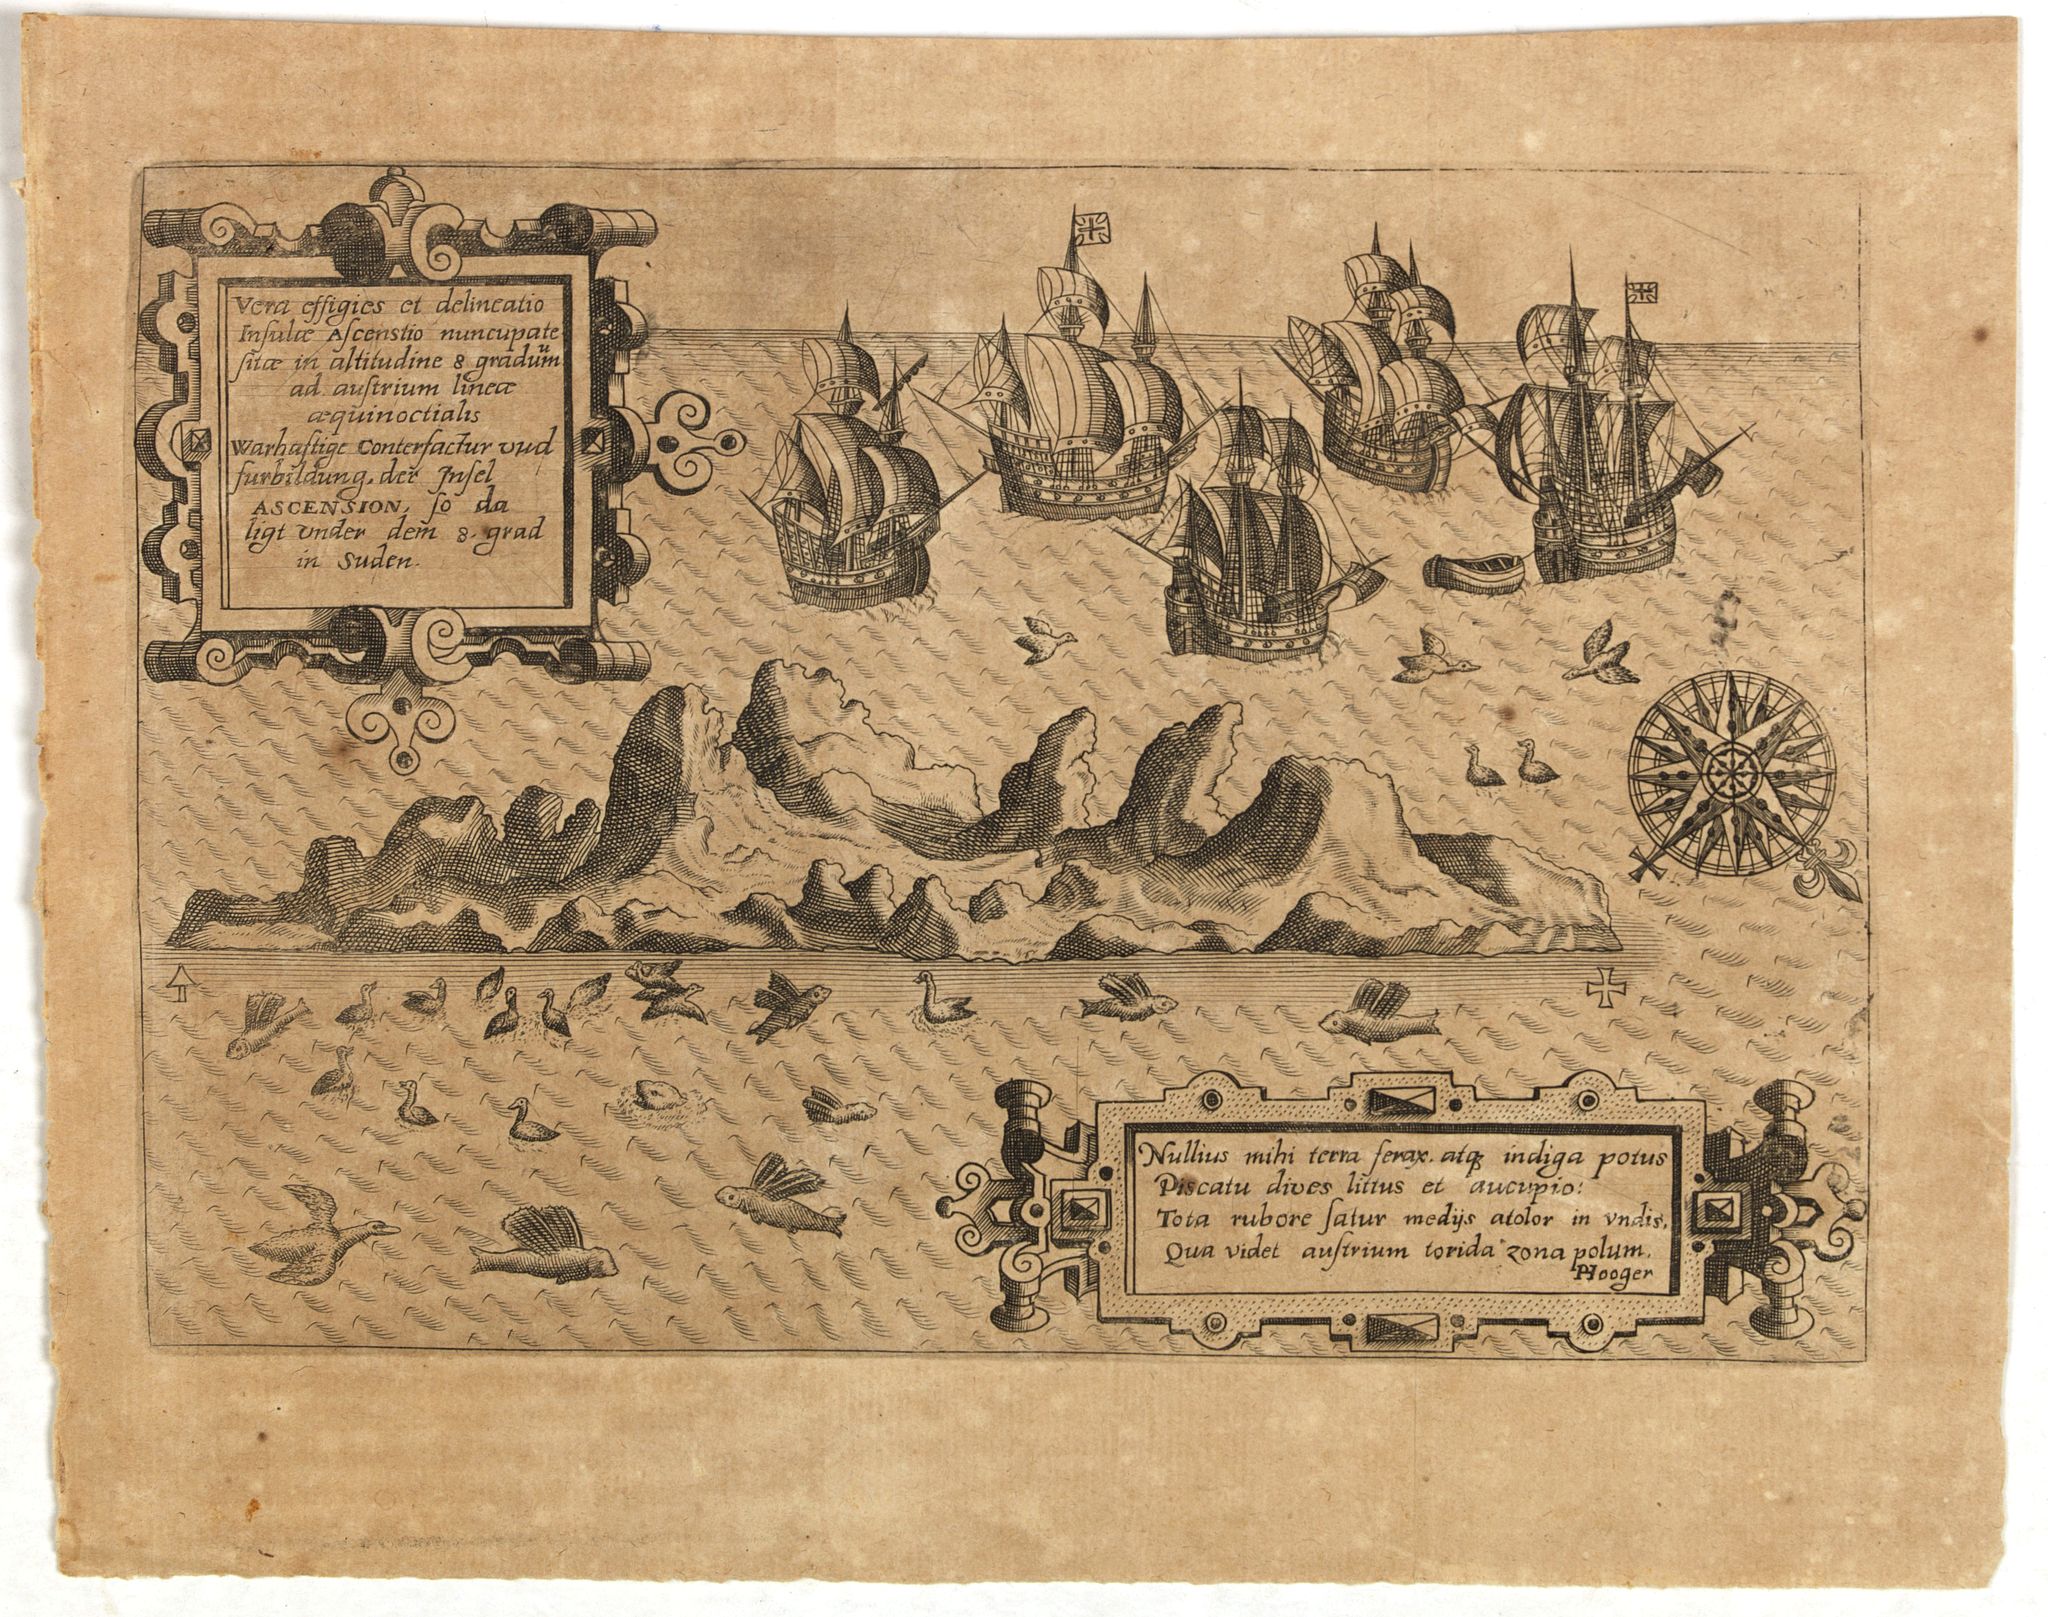 Vera effigies et delineatio
Insulæ Ascenstio nuncupate
sitæ in altitudine 8 graduũm
ad austrium lineæ
æquinoctialis
Warhaftige Conterfactur vnd
furbildung, der Insel
ASCENSION, so da
ligt vnder dem 8. grad
in Suden.
Nullius mihi terra ferax, atq3 indiga potus
Piscatu dives littus et aucupio:
Tota rubore satur medijs atolor in vndis,
Qua videt austrium torida zona polum.
PHooger